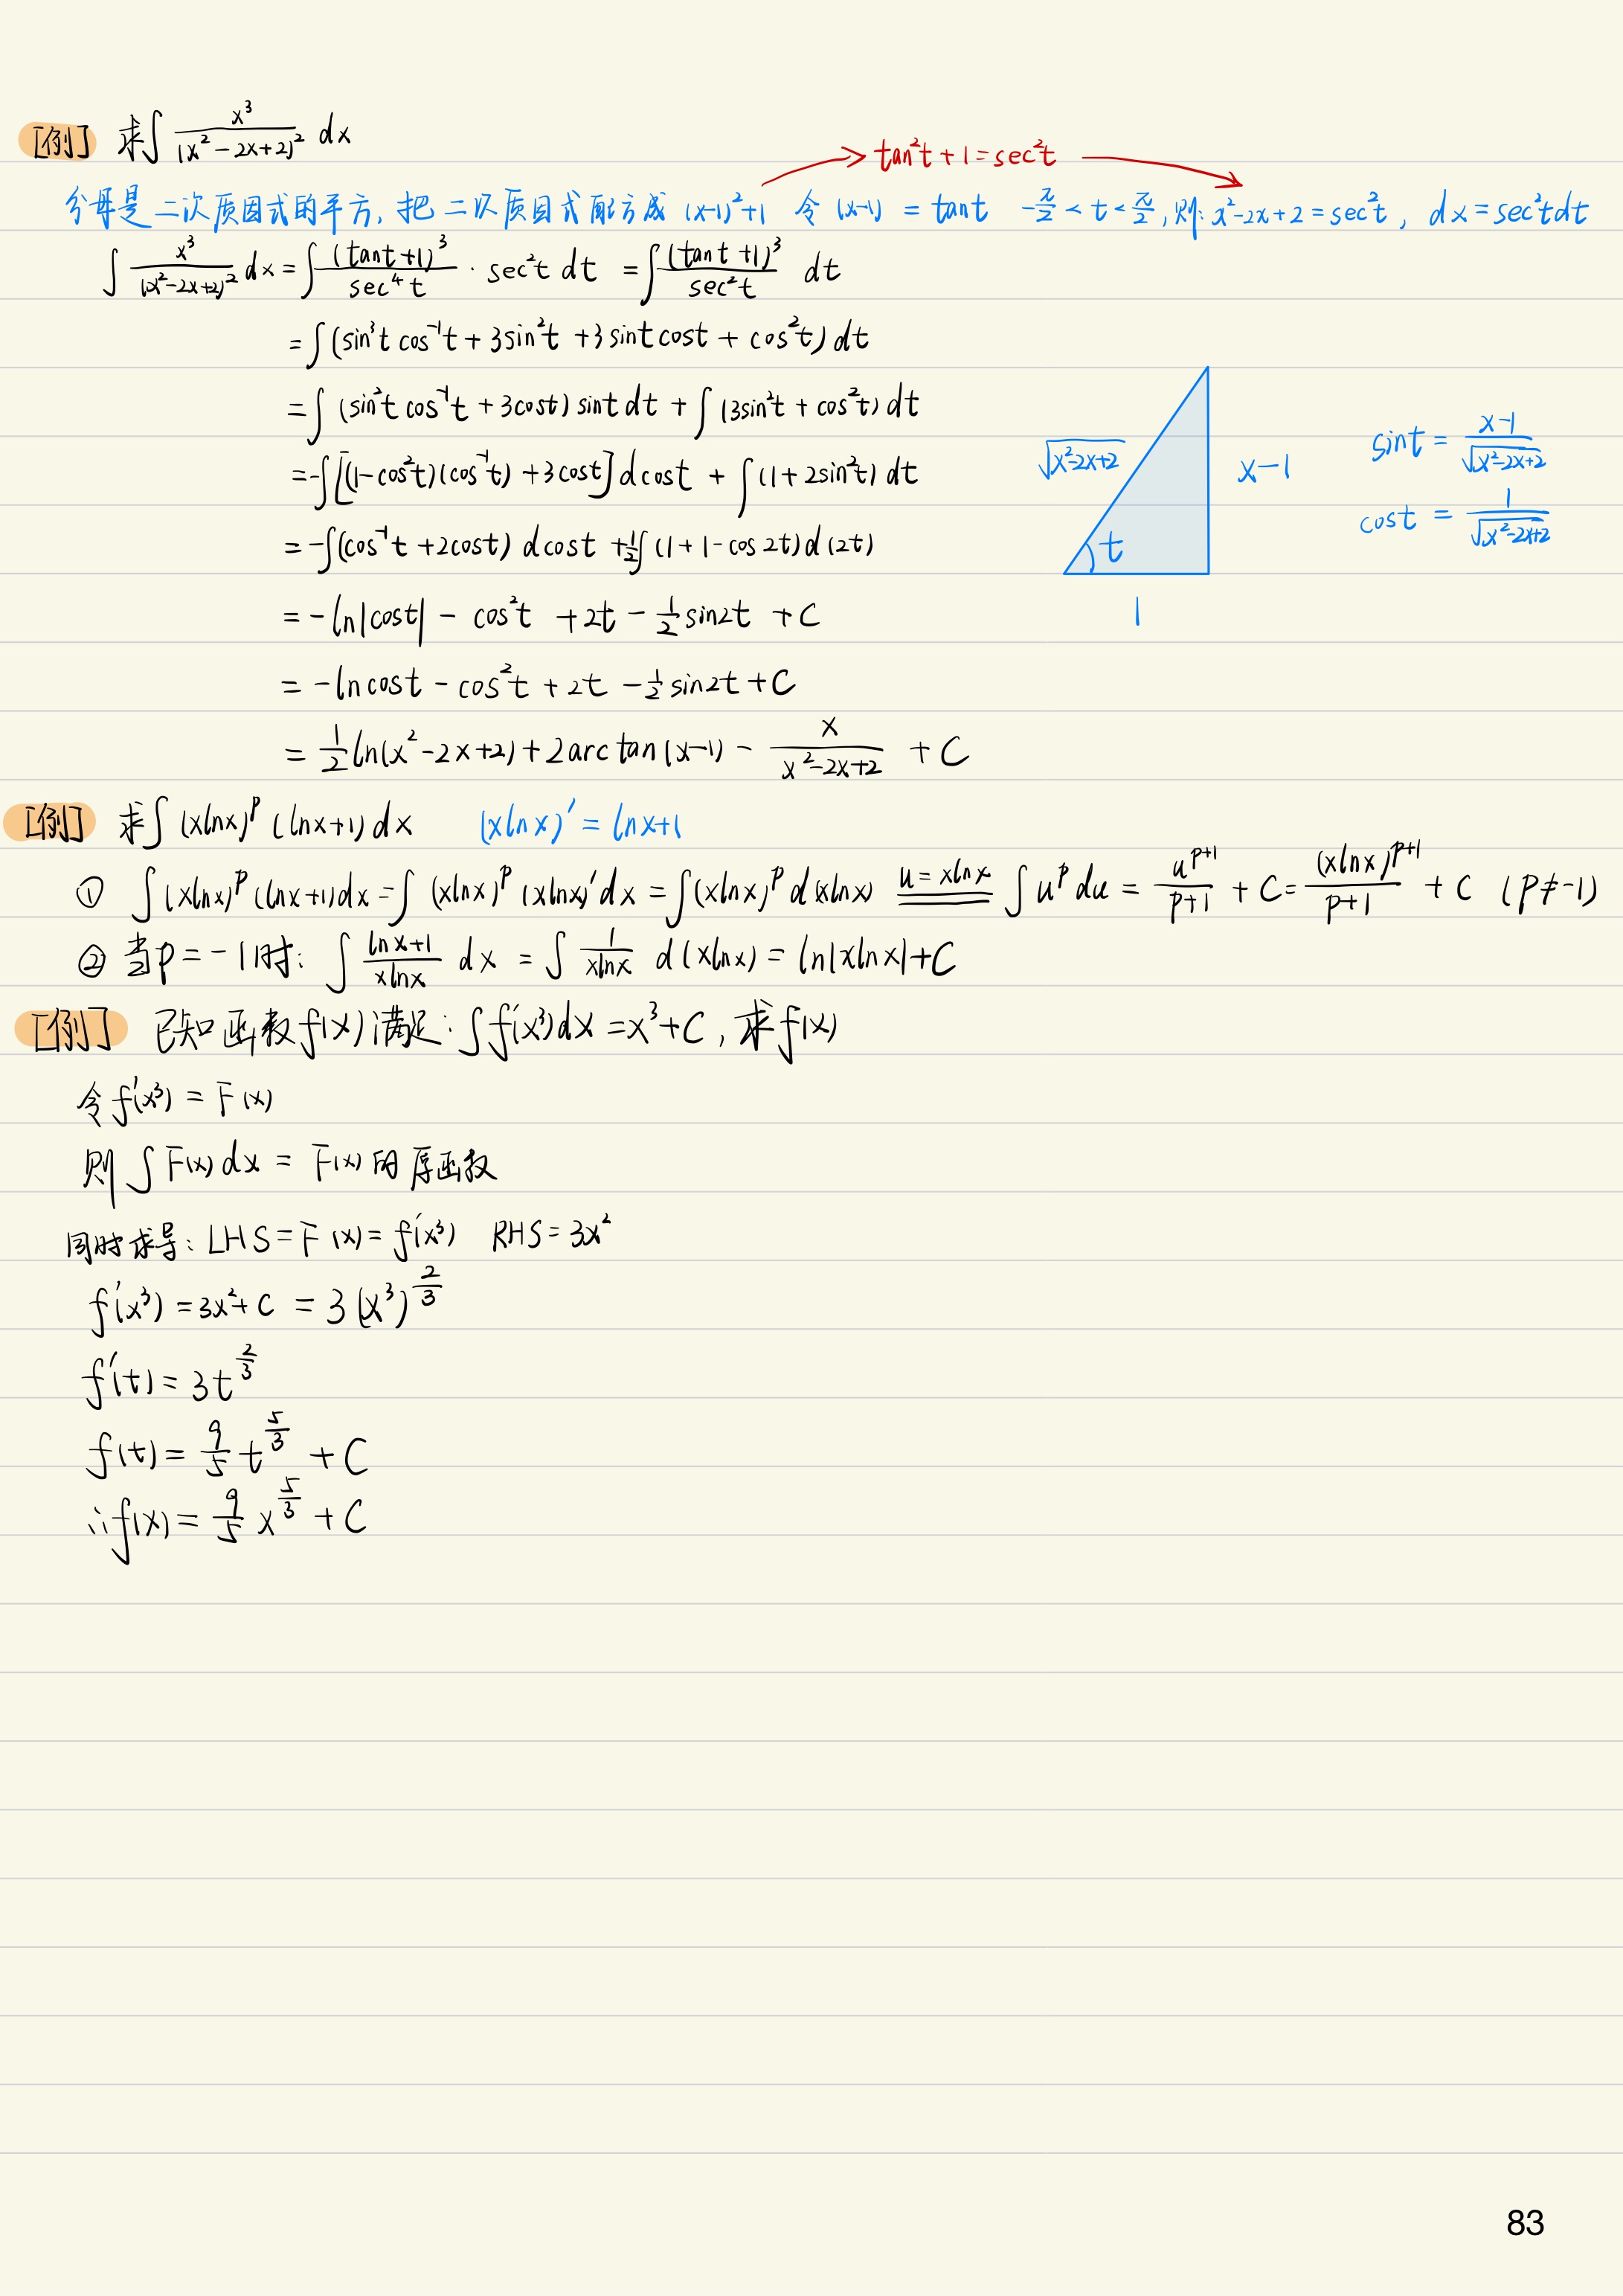 [例] 求∫ x³/(x²-2x+2)² dx
tan²t+1=sec²t
分母是二次质因式的平方, 把二次质因式配方成 (x-1)²+1 令 (x-1) = tant -π/2 < t < π/2, 则: x²-2x+2 = sec²t, dx = sec²tdt
∫ x³/(x²-2x+2)² dx = ∫ (tant+1)³/sec⁴t · sec²t dt = ∫ (tant+1)³/sec²t dt
= ∫ (sin³t cos⁻¹t + 3sin²t + 3sintcost + cos²t) dt
= ∫ (sin²t cos⁻¹t + 3cost) sint dt + ∫ (3sin²t + cos²t) dt
= -∫ [(1-cos²t)(cos⁻¹t) + 3cost] dcost + ∫ (1+2sin²t) dt
= -∫ (cos⁻¹t + 2cost) dcost + ½∫ (1+1-cos2t) d(2t)
= -ln|cost| - cos²t + 2t - ½ sin2t + C
= -lncost - cos²t + 2t - ½ sin2t + C
= ½ ln(x²-2x+2) + 2arctan(x-1) - x/(x²-2x+2) + C
√x²-2x+2
x-1
t
1
sint = (x-1)/√x²-2x+2
cost = 1/√x²-2x+2
[例] 求∫ (xlnx)ᵖ (lnx+1) dx (xlnx)′ = lnx+1
① ∫ (xlnx)ᵖ (lnx+1)dx = ∫ (xlnx)ᵖ (xlnx)′dx = ∫ (xlnx)ᵖ d(xlnx) u=xlnx ∫ uᵖ du = uᵖ⁺¹/(p+1) + C = (xlnx)ᵖ⁺¹/(p+1) + C (p≠-1)
② 当p=-1时: ∫ (lnx+1)/(xlnx) dx = ∫ 1/(xlnx) d(xlnx) = ln|xlnx|+C
[例] 已知函数f(x)满足: ∫f′(x³)dx = x³+C, 求f(x)
令f′(x³) = F(x)
则 ∫ F(x) dx = F(x) 的原函数
同时求导: LHS = F(x) = f′(x³) RHS = 3x²
f′(x³) = 3x²+C = 3(x³)^(2/3)
f′(t) = 3t^(2/3)
f(t) = 9/5 t^(5/3) + C
∴f(x) = 9/5 x^(5/3) + C
83